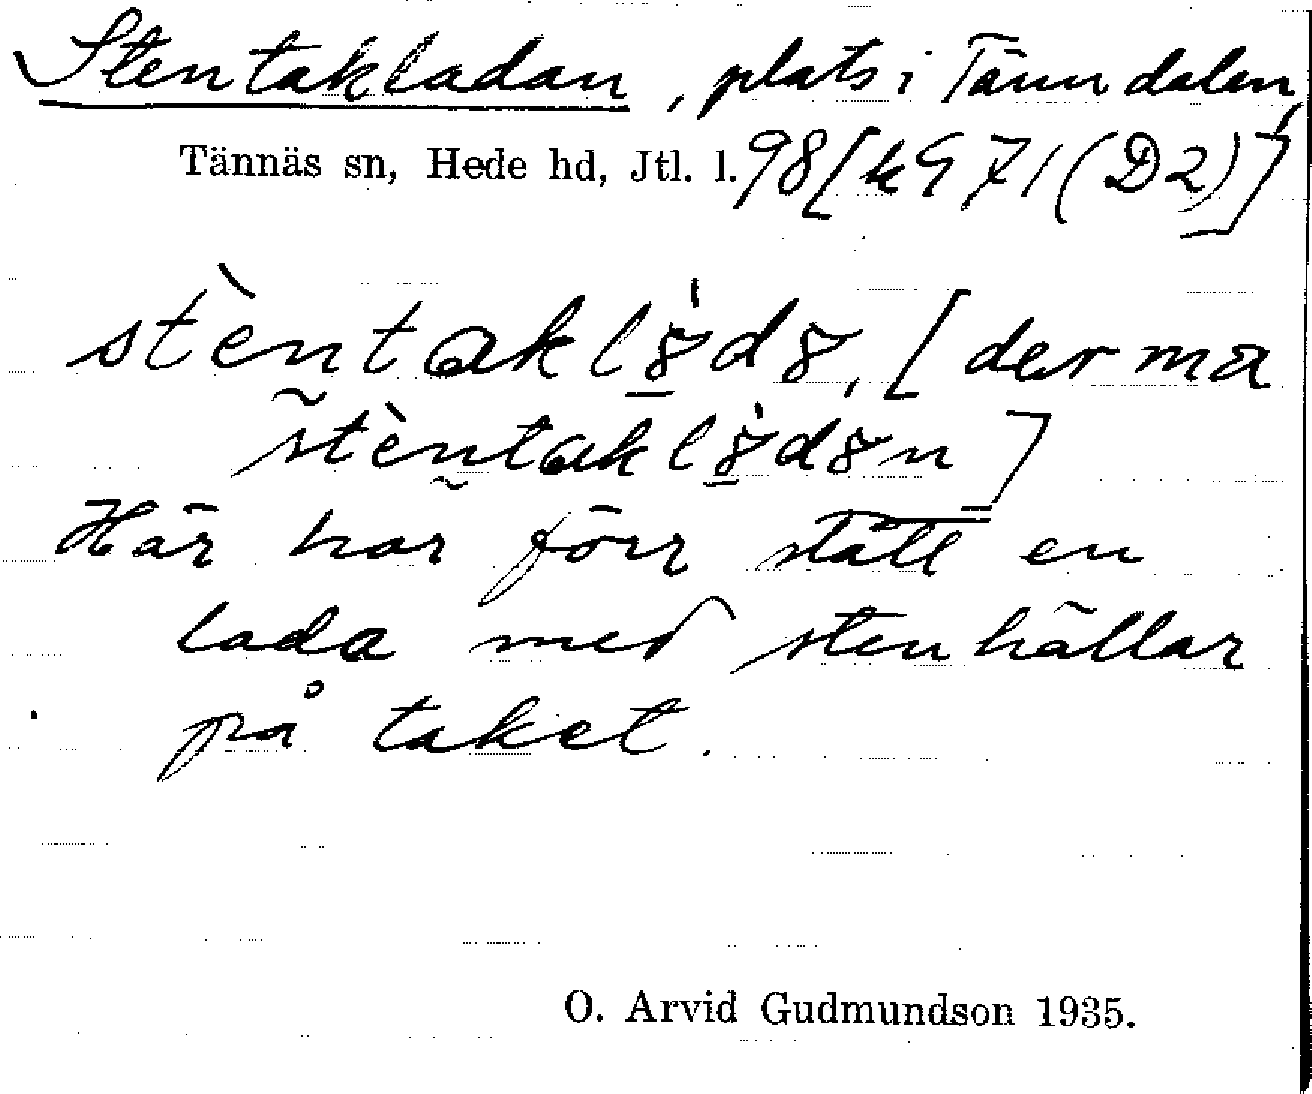 Stentakladan, plats i Tänndalen,
Tännäs sn, Hede hd, Jtl. l. 98 [k971(D2)]
stèntaklàdå, [der ma
stèntaklådån]
Här har förr stått en
lada med stenhällar
på taket.
O. Arvid Gudmundson 1935.